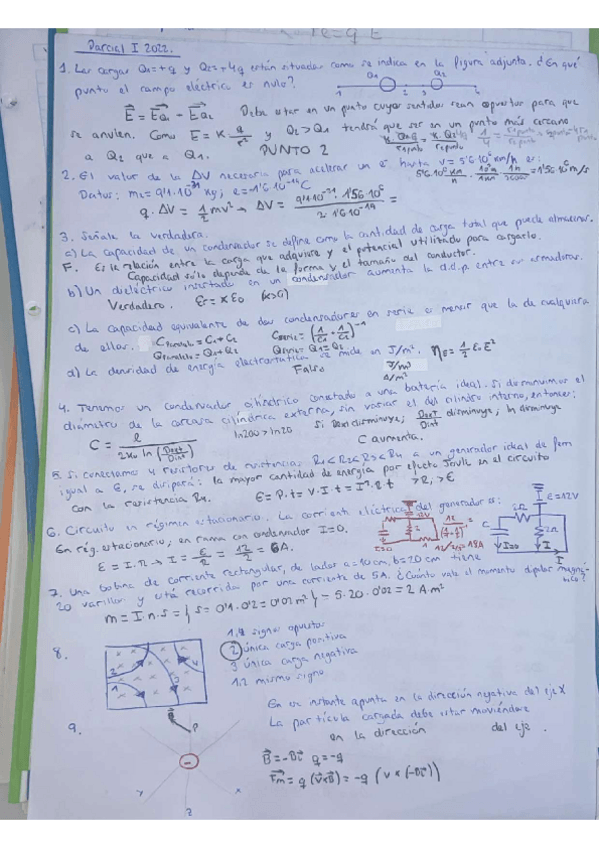 Parcial I 2022.
1. Las cargas Q1=+q y Q2=+4q están situadas como se indica en la figura adjunta. ¿En qué
punto el campo eléctrico es nulo?
Q1 Q2
1 2 3 4
E = EQ1 - EQ2 Debe estar en un punto cuyos sentidos sean opuestos para que
se anulen. Como E = K q/r² y Q2 > Q1 tendrá que ser en un punto más cercano
a Q2 que a Q1. PUNTO 2
2. El valor de la ΔV necesaria para acelerar un e⁻ hasta v = 5'6·10⁶ km/h es:
Datos: me = 9'1·10⁻³¹ kg; e = 1'6·10⁻¹⁹ C
q·ΔV = 1/2 mv² → ΔV =
3. Señale la verdadera.
a) La capacidad de un condensador se define como la cantidad de carga total que puede almacenar.
F. Es la relación entre la carga que adquiere y el potencial utilizado para cargarlo.
Capacidad sólo depende de la forma y el tamaño del conductor.
b) Un dieléctrico insertado en un condensador aumenta la d.d.p. entre sus armaduras.
Verdadero.
c) La capacidad equivalente de dos condensadores en serie es menor que la de cualquiera
de ellos. Cparalelo = C1 + C2 Cserie = (1/C1 + 1/C2)⁻¹
Qparalelo = Q1 + Q2 Qserie = Q1 = Q2
d) La densidad de energía electrostática se mide en J/m². ηE = 1/2 ε0 E²
Falso J/m³
4. Tenemos un condensador cilíndrico conectado a una batería ideal. Si disminuimos el
diámetro de la carcasa cilíndrica externa, sin variar el del cilindro interno, entonces:
ln200 > ln20 Si Dext disminuye; Dext/Dint disminuye; ln disminuye
C aumenta.
5. Si conectamos 4 resistores de resistencia; R1<R2<R3<R4 a un generador ideal de fem
igual a ε, se disipará: la mayor cantidad de energía por efecto Joule en el circuito
con la resistencia R4. E = P·t = V·I·t = I²·R·t > R, > E
6. Circuito en régimen estacionario. La corriente eléctrica del generador es:
En rég. estacionario, en rama con condensador I=0.
ε = I·R → I = ε/R = 12/2 = 6A.
ε=12V
2Ω
C
I=0
2Ω
I
7. Una bobina de corriente rectangular, de lados a=10cm, b=20cm tiene
20 varillas y está recorrida por una corriente de 5A. ¿Cuánto vale el momento dipolar magné-
tico?
m = I·n·S = { S = 0'1·0'2 = 0'02 m² } = 5·20·0'02 = 2 A·m²
8.
1,2 signos opuestos
2 única carga positiva
3 única carga negativa
1,2 mismo signo
9.
En un instante apunta en la dirección negativa del eje X
La partícula cargada debe estar moviéndose
en la dirección del eje
B = -Bi q = -q
Fm = q (v×B) = -q (v × (-Bi))
P
y
x
z